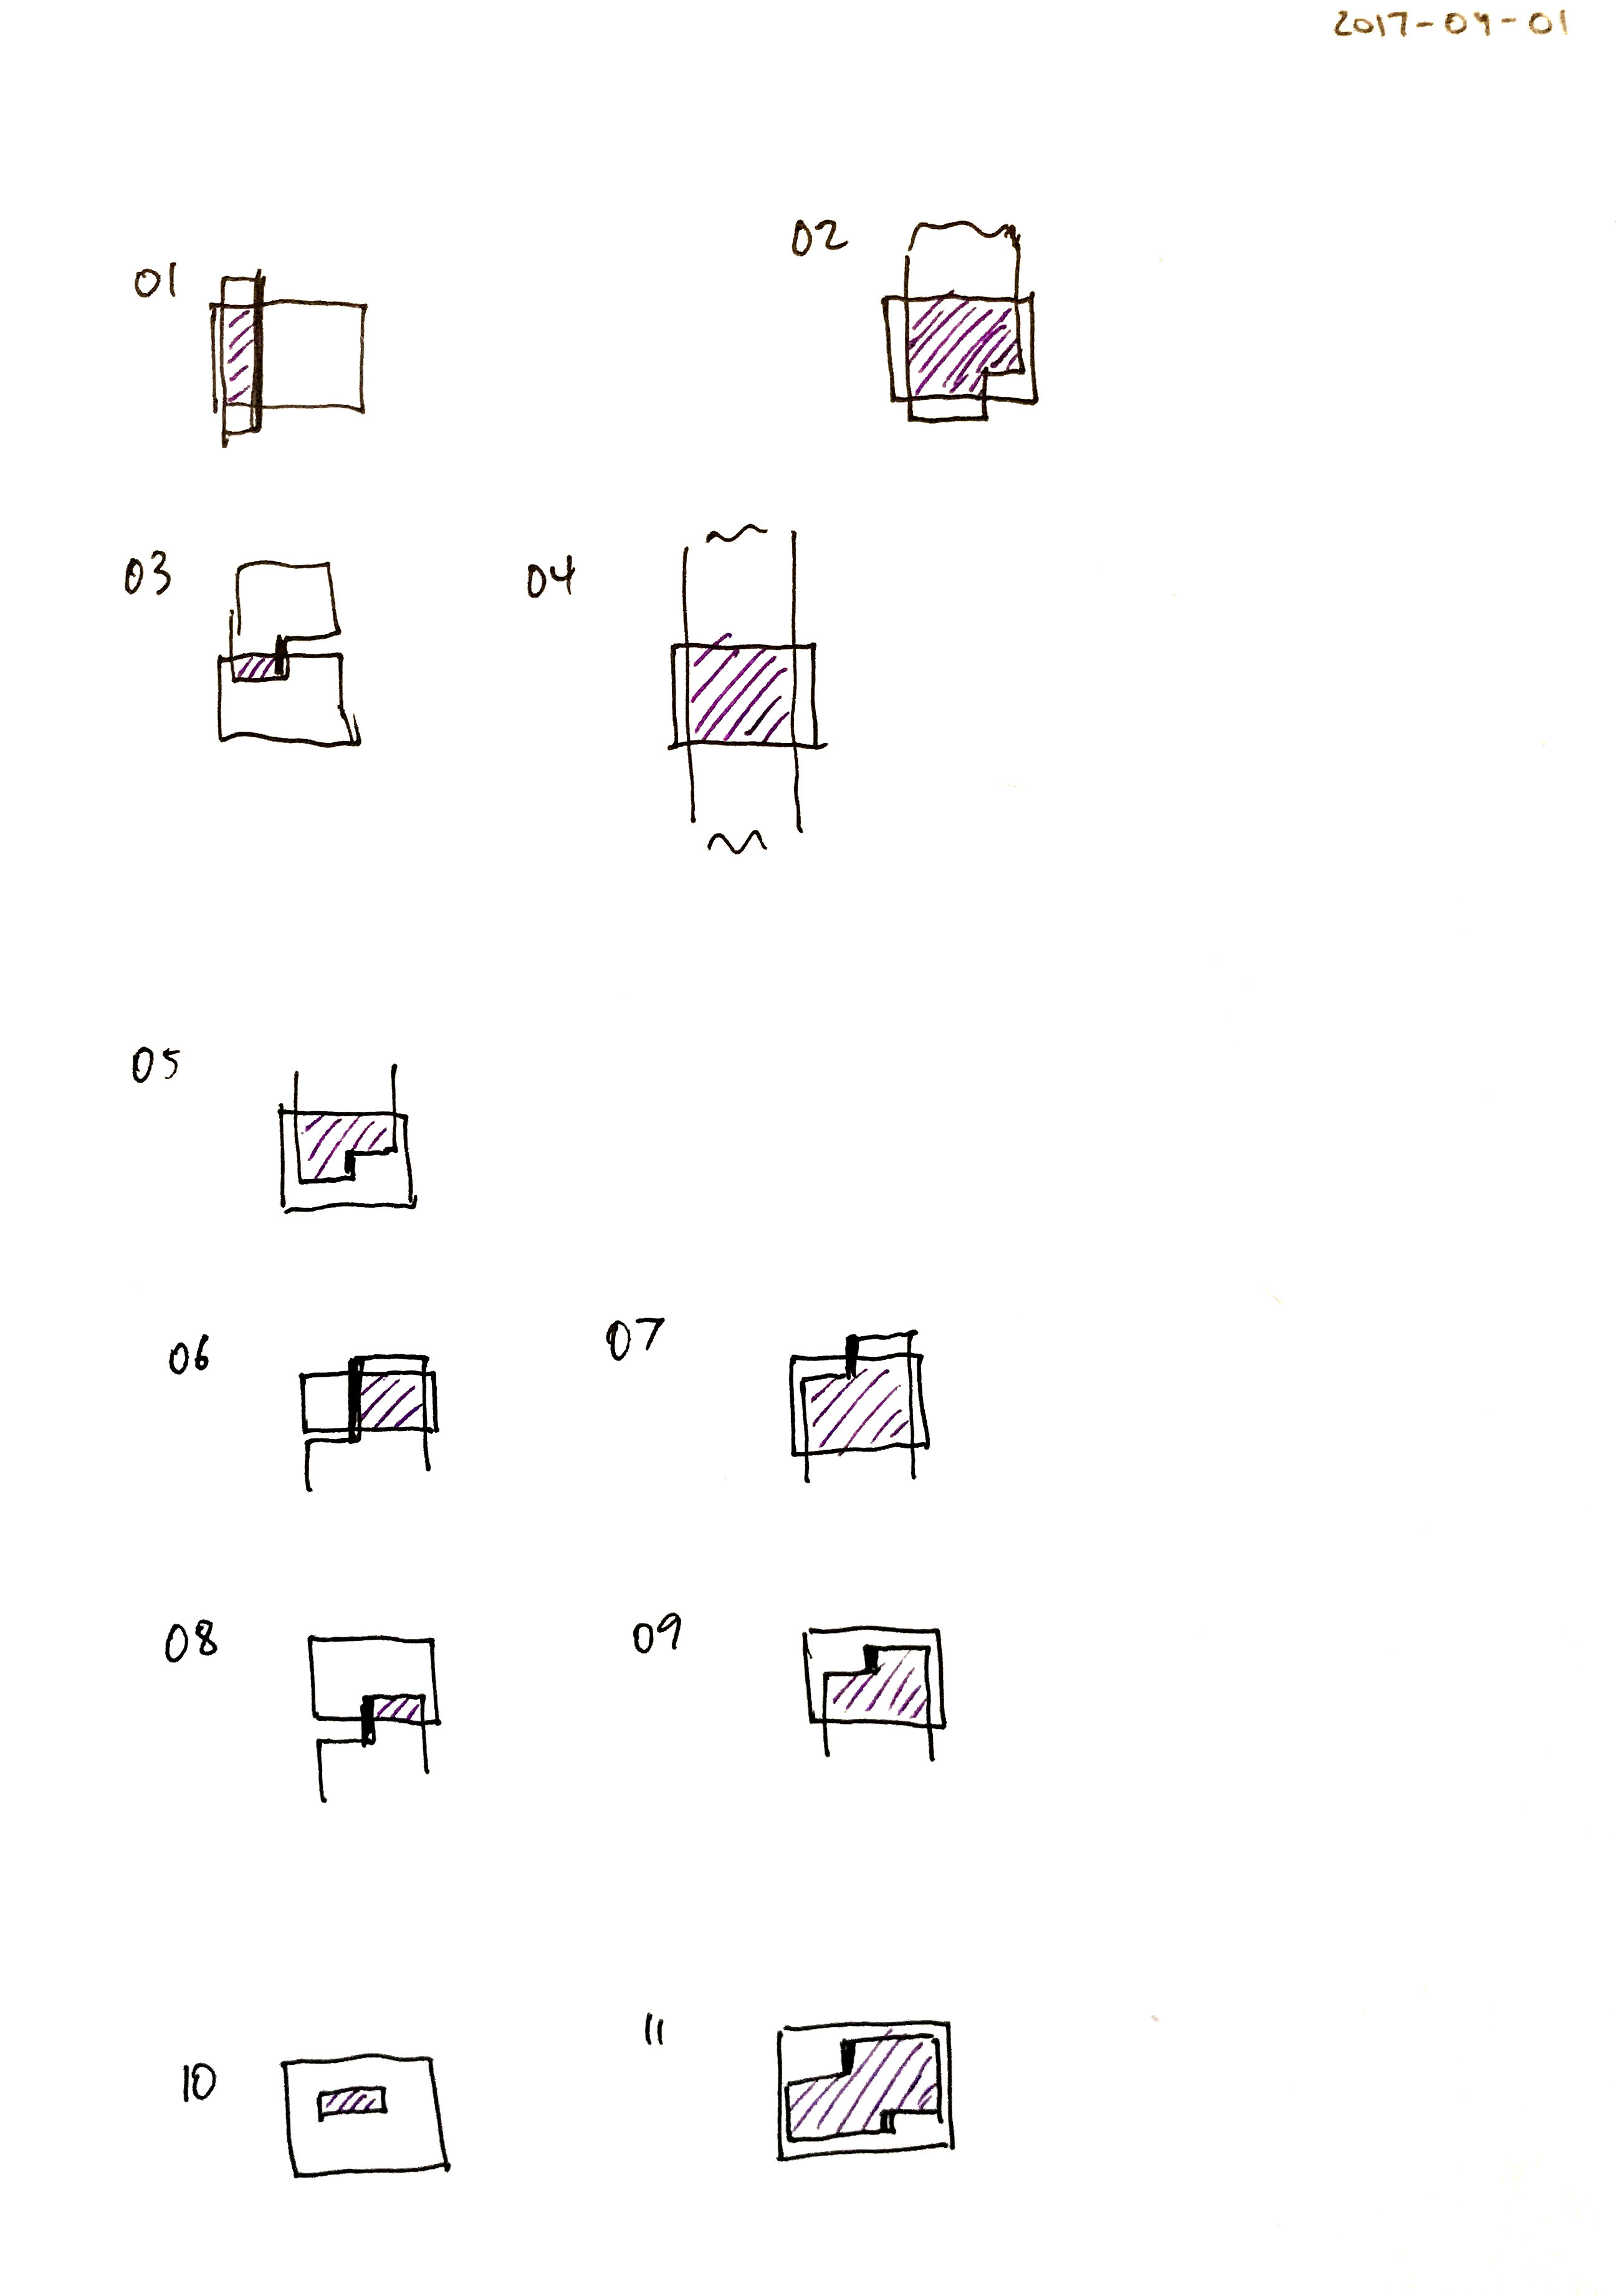 2017-04-01
01
02
03
04
05
06
07
08
09
10
11